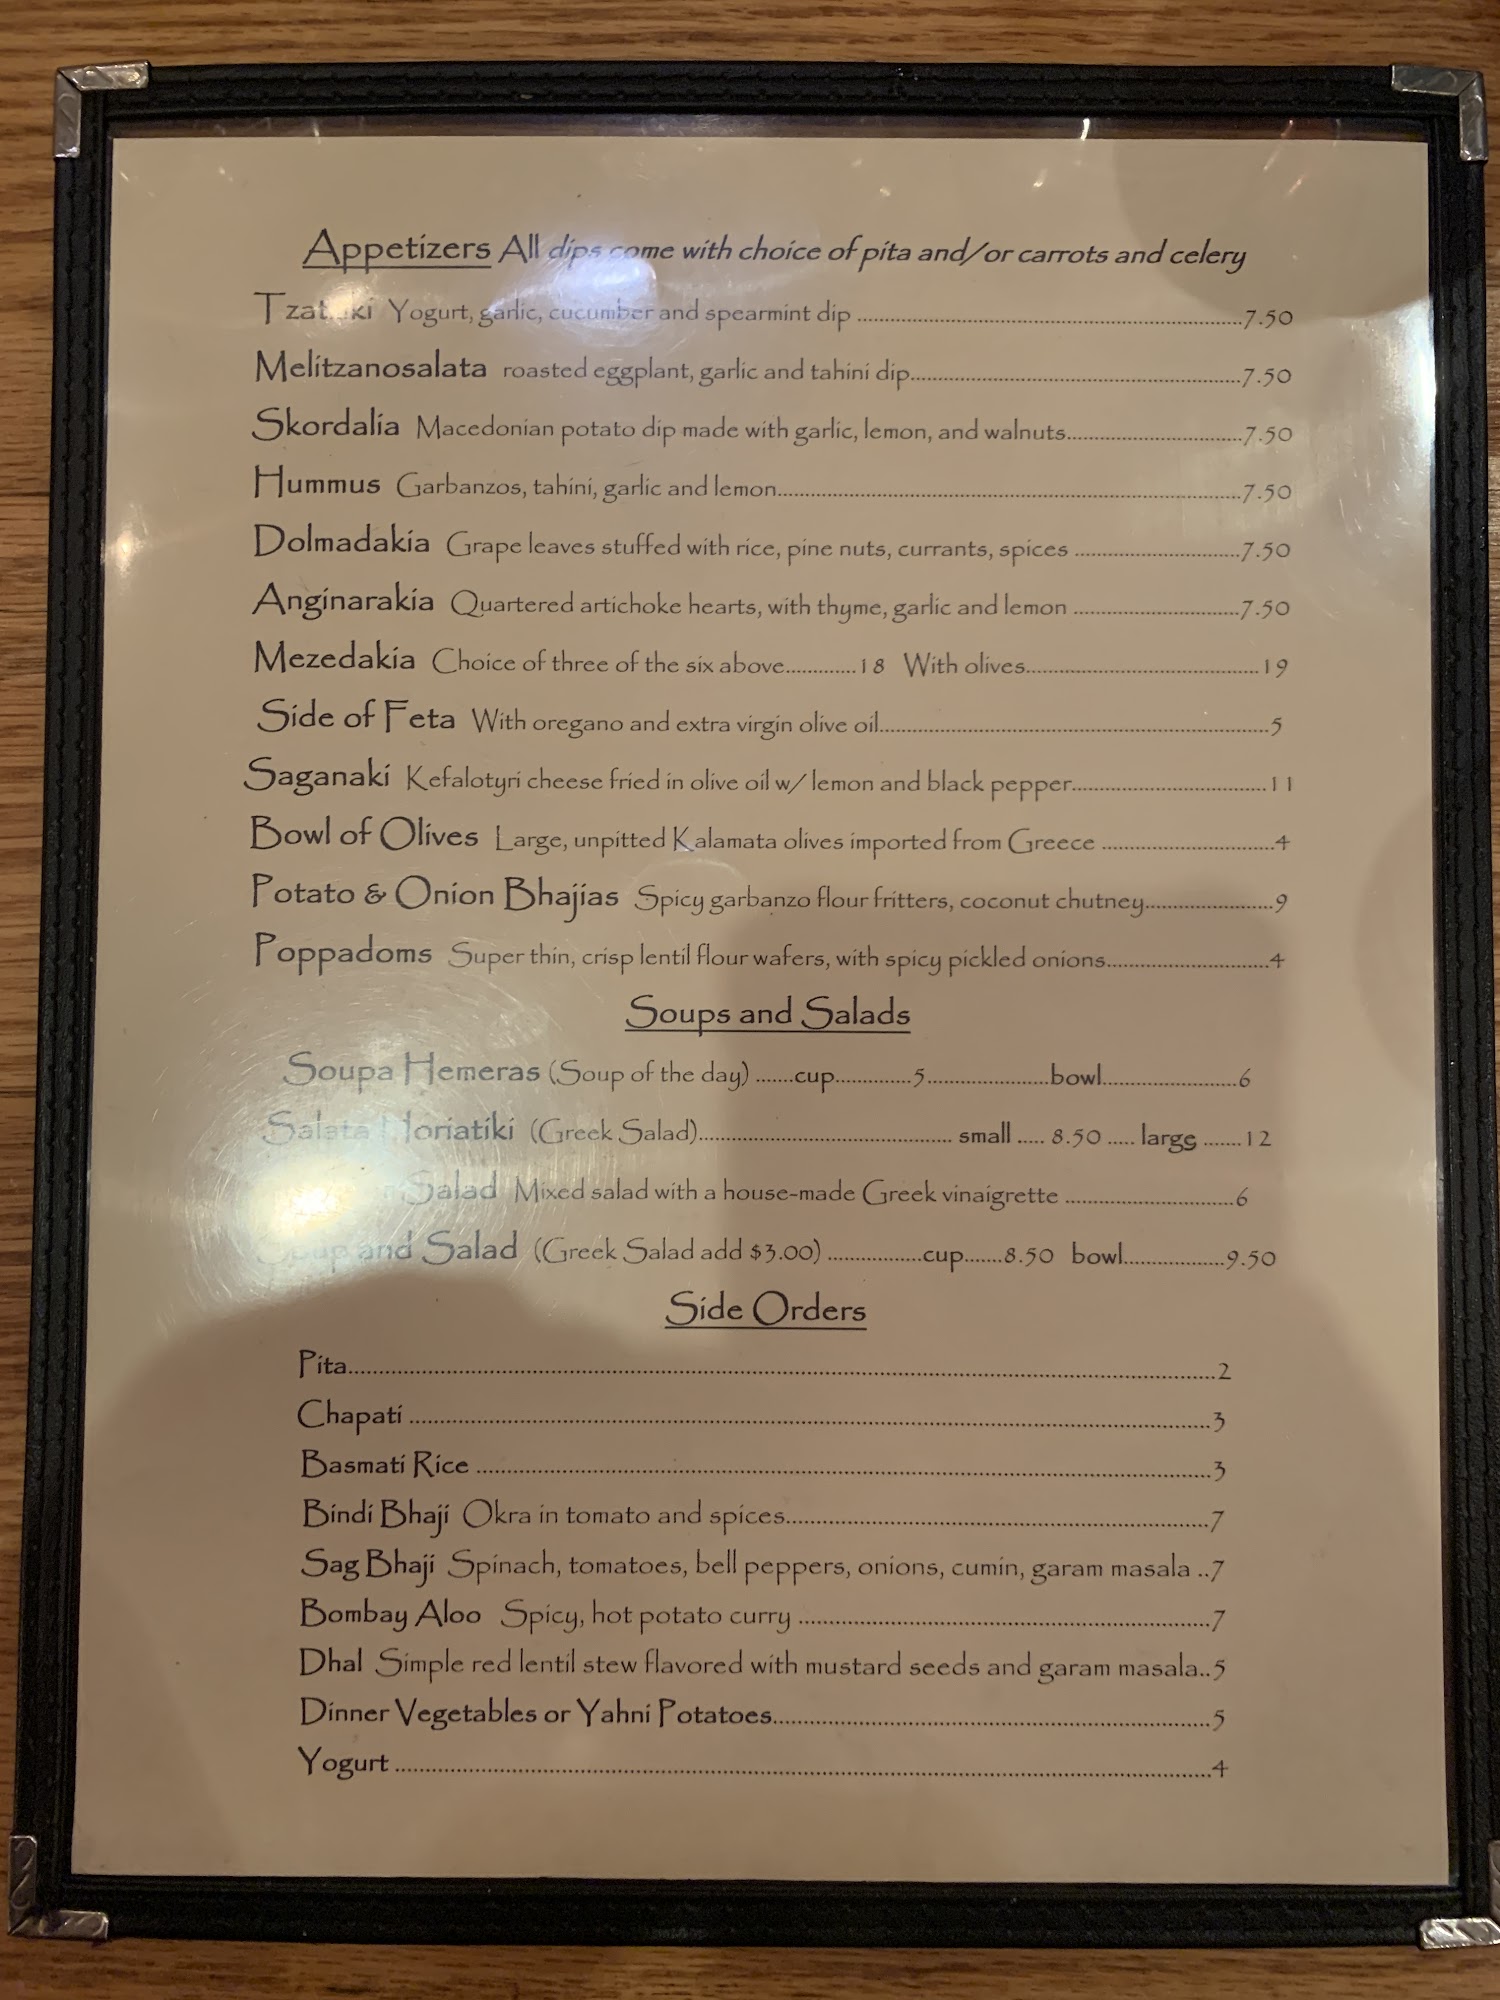 Appetizers All dips come with choice of pita and/or carrots and celery
Tzatziki Yogurt, garlic, cucumber and spearmint dip ........7.50
Melitzanosalata roasted eggplant, garlic and tahini dip........7.50
Skordalia Macedonian potato dip made with garlic, lemon, and walnuts........7.50
Hummus Garbanzos, tahini, garlic and lemon........7.50
Dolmadakia Grape leaves stuffed with rice, pine nuts, currants, spices ........7.50
Anginarakia Quartered artichoke hearts, with thyme, garlic and lemon ........7.50
Mezedakia Choice of three of the six above........18 With olives........19
Side of Feta With oregano and extra virgin olive oil........5
Saganaki Kefalotyri cheese fried in olive oil w/ lemon and black pepper........11
Bowl of Olives Large, unpitted Kalamata olives imported from Greece ........4
Potato & Onion Bhajias Spicy garbanzo flour fritters, coconut chutney........9
Poppadoms Super thin, crisp lentil flour wafers, with spicy pickled onions........4
Soups and Salads
Soupa Hemeras (Soup of the day) .......cup........5........bowl........6
Salata Horiatiki (Greek Salad)........ small ..... 8.50 ..... large .......12
Salad Mixed salad with a house-made Greek vinaigrette ........6
Soup and Salad (Greek Salad add $3.00) ........cup.......8.50 bowl........9.50
Side Orders
Pita........2
Chapati ........3
Basmati Rice ........3
Bindi Bhaji Okra in tomato and spices........7
Sag Bhaji Spinach, tomatoes, bell peppers, onions, cumin, garam masala ..7
Bombay Aloo Spicy, hot potato curry ........7
Dhal Simple red lentil stew flavored with mustard seeds and garam masala..5
Dinner Vegetables or Yahni Potatoes........5
Yogurt ........4